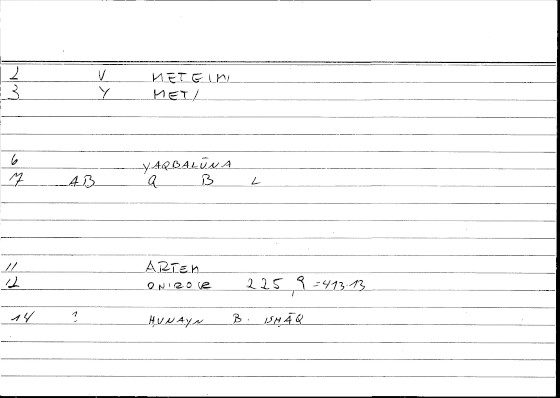 2 V METEIMI
3 Y METI
6 YAQBALŪNA
7 AB Q B L
11 ARTEM
12 ONIROCR 225,9=413.13
14 ? HUNAYN B. ISHĀQ